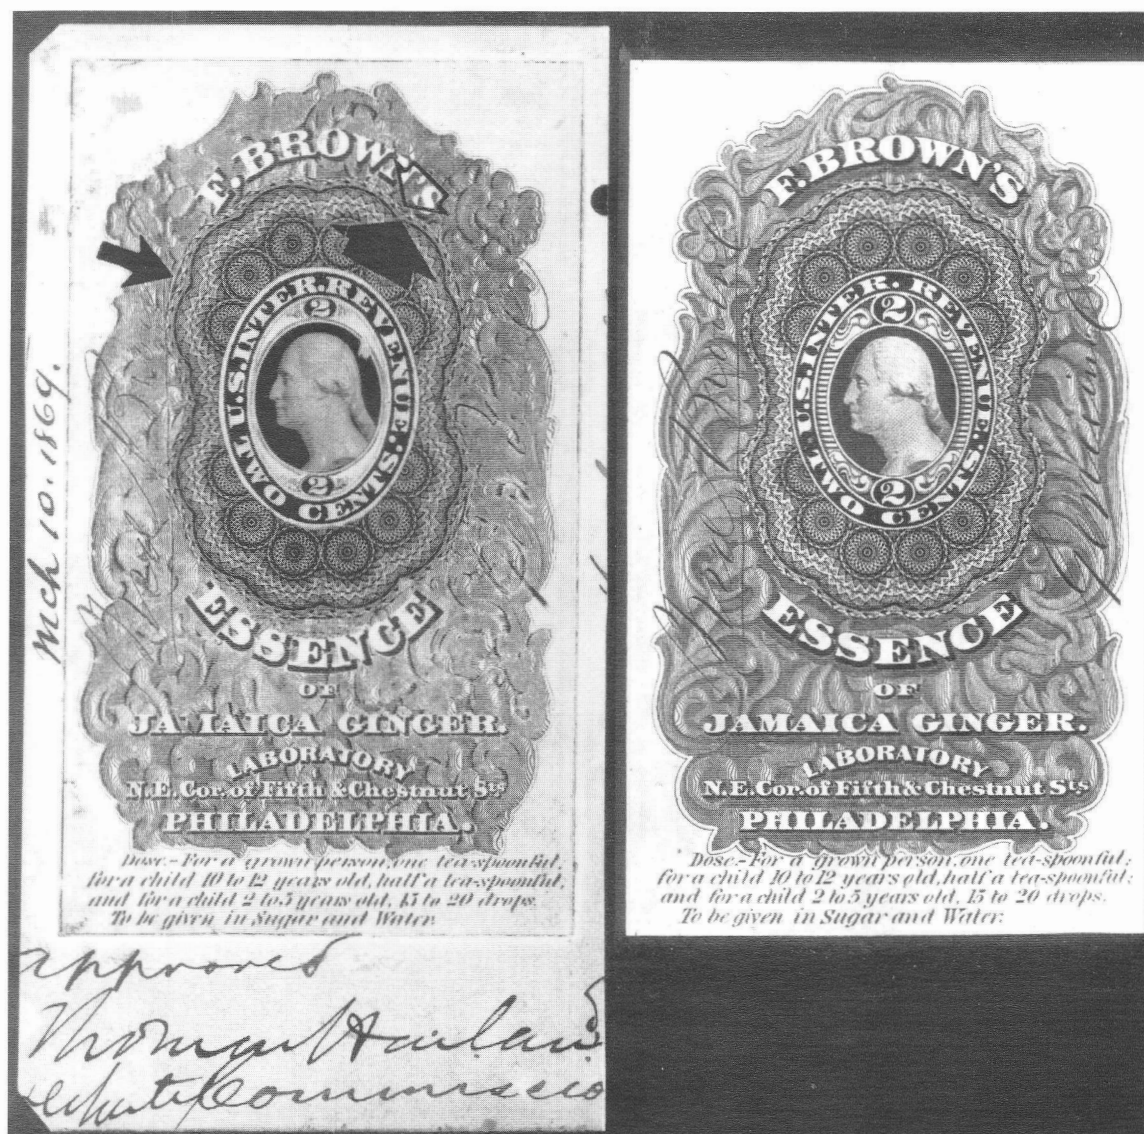 Mch 10. 1869.
F. BROWN'S
U.S. INTER. REVENUE.
2
2
TWO CENTS.
ESSENCE
OF
JAMAICA GINGER.
LABORATORY
N.E. Cor. of Fifth & Chestnut Sts
PHILADELPHIA.
Dose.- For a grown person, one tea-spoonful;
for a child 10 to 12 years old, half a tea-spoonful;
and for a child 2 to 5 years old, 15 to 20 drops.
To be given in Sugar and Water.
approved
Thomas Harland
Commissio
F. BROWN'S
U.S. INTER. REVENUE.
2
2
TWO CENTS.
ESSENCE
OF
JAMAICA GINGER.
LABORATORY
N.E. Cor. of Fifth & Chestnut Sts
PHILADELPHIA.
Dose.- For a grown person, one tea-spoonful;
for a child 10 to 12 years old, half a tea-spoonful;
and for a child 2 to 5 years old, 15 to 20 drops.
To be given in Sugar and Water.